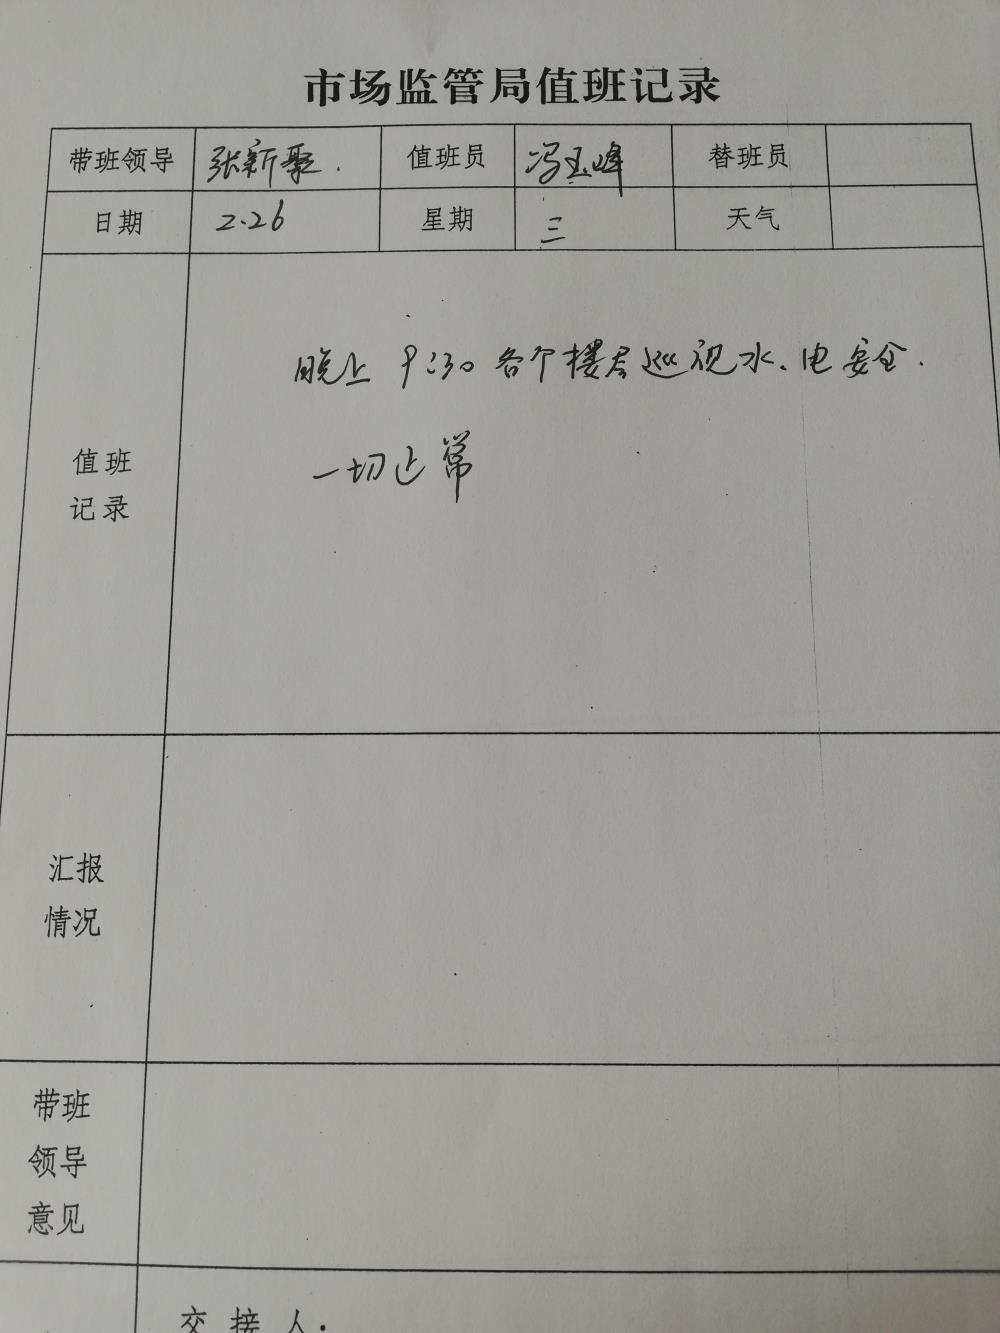 市场监管局值班记录
带班领导 张新聚. 值班员 冯玉峰 替班员
日期 2.26 星期 三 天气
晚上 9:30 各个楼层巡视水、电安全.
一切正常
值班
记录
汇报
情况
带班
领导
意见
交接人: